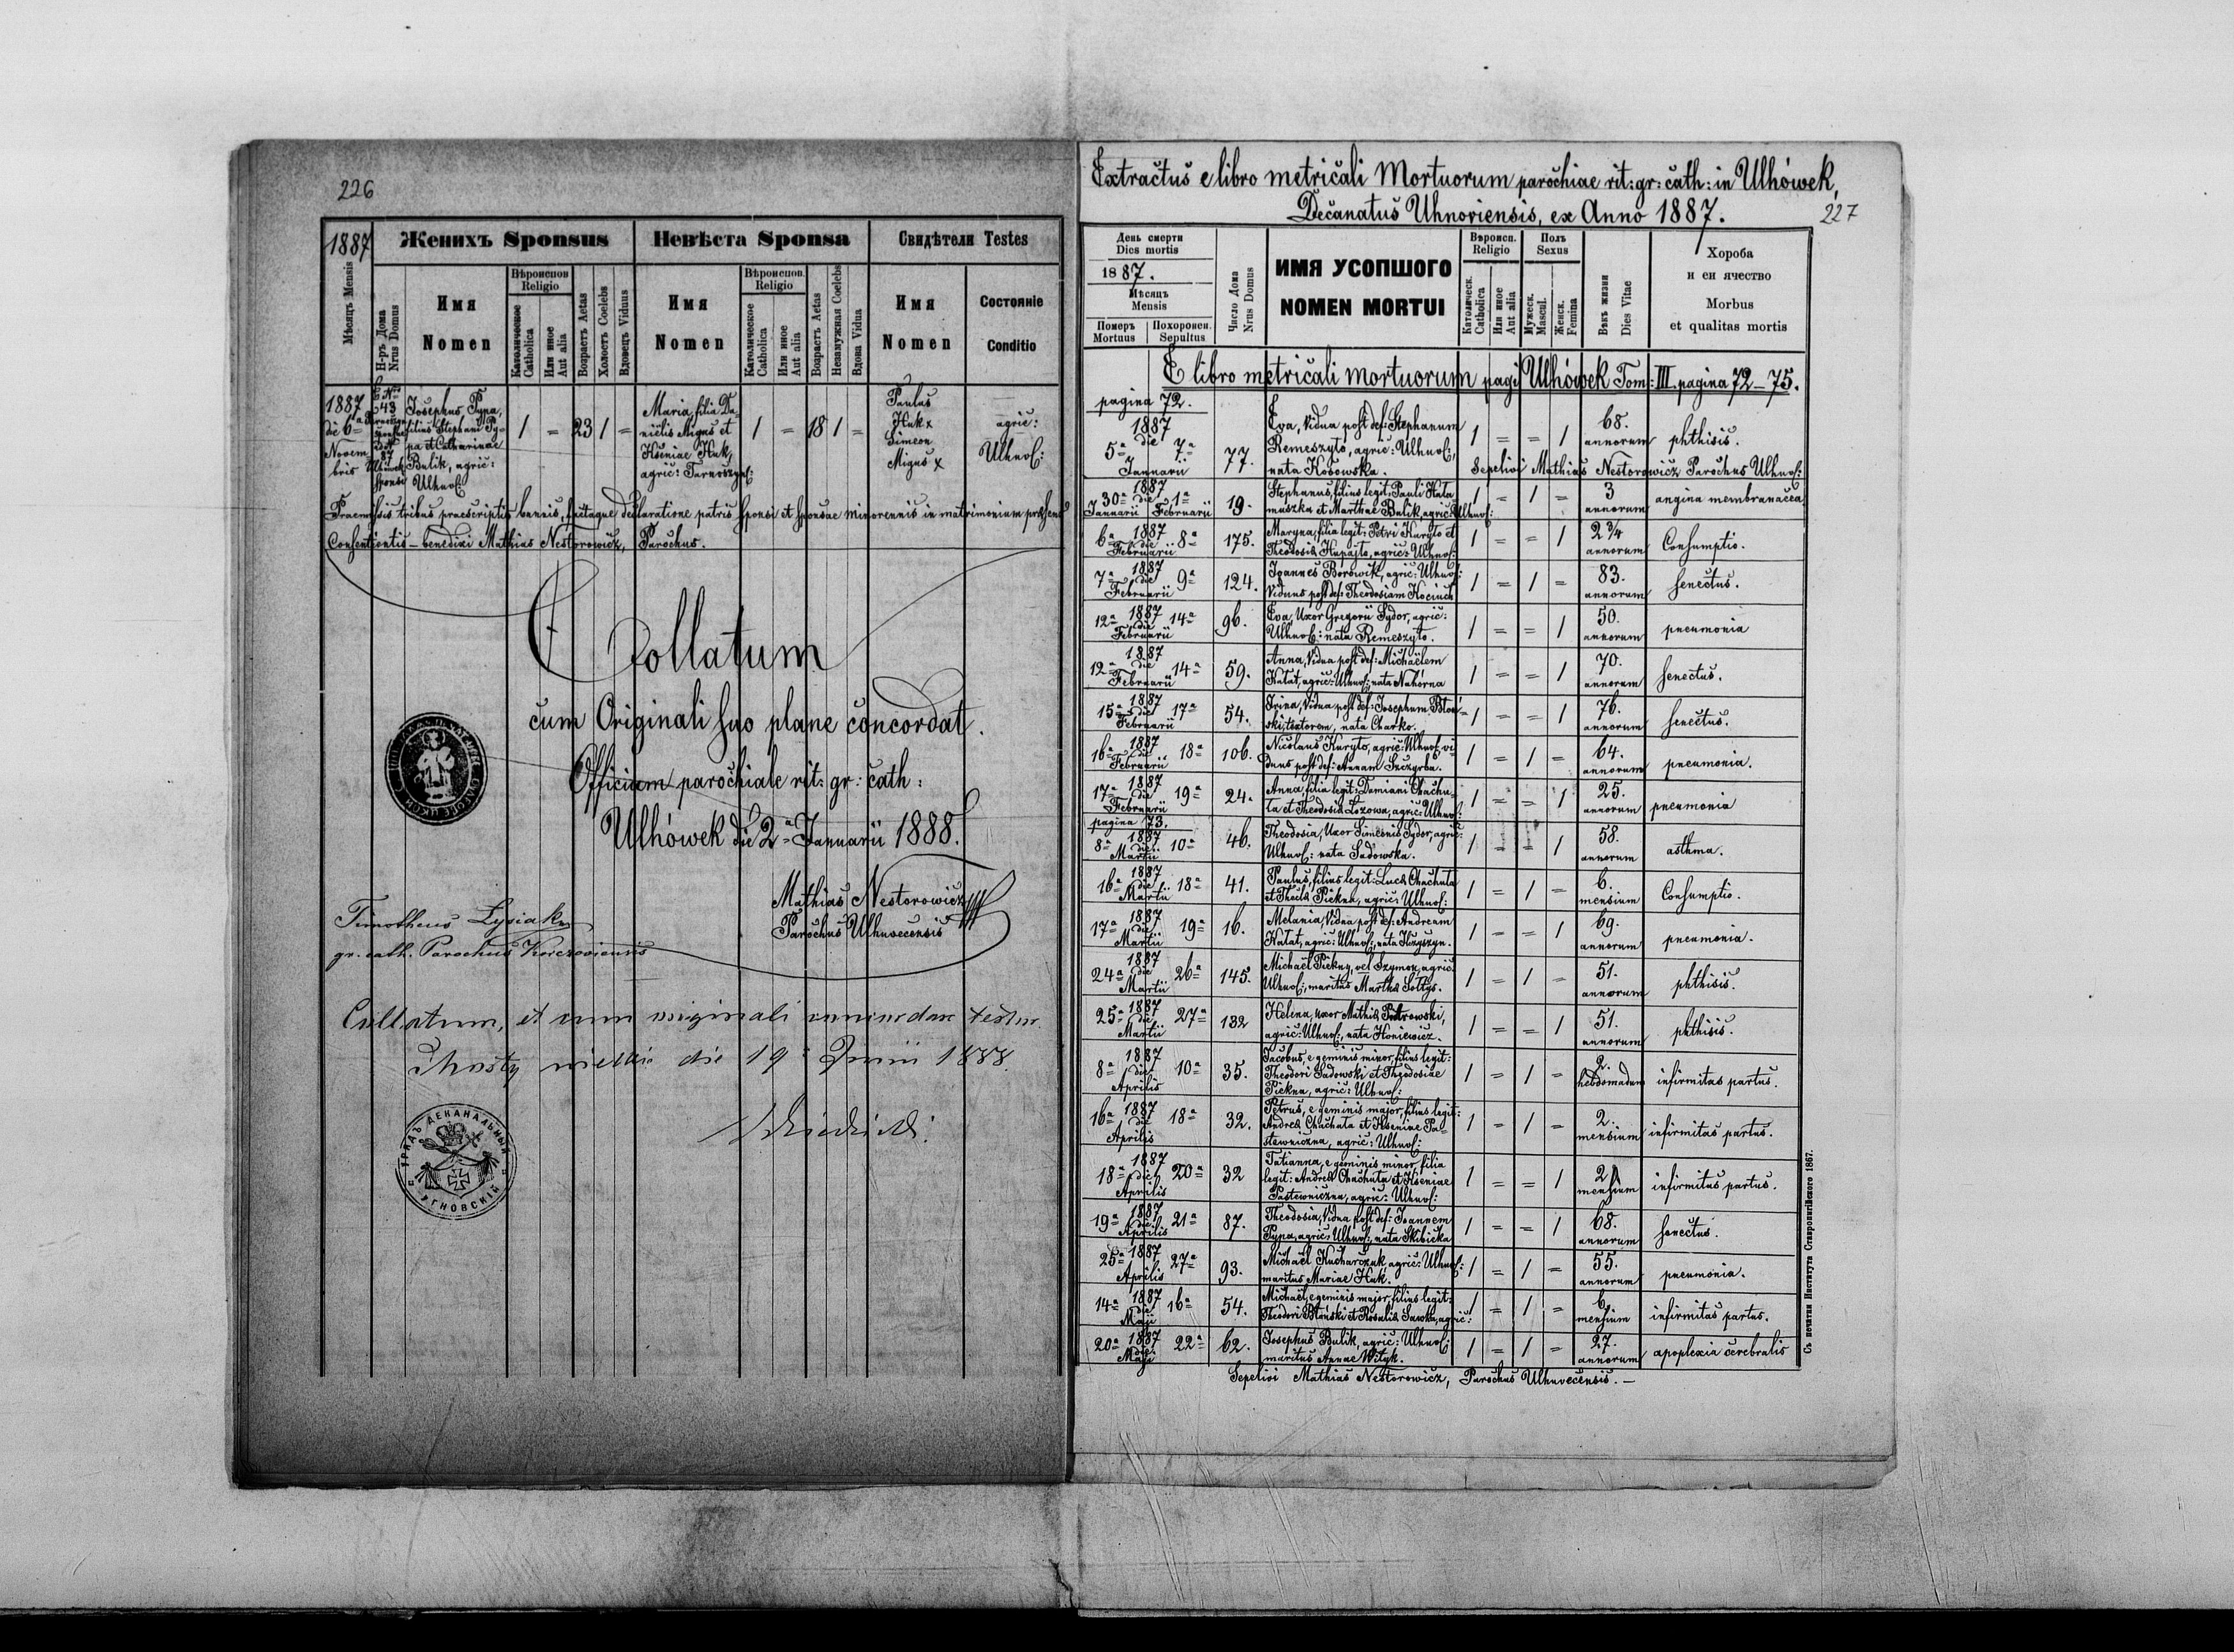 226
1887 Женихъ Sponsus Невѣста Sponsa Свидѣтели Testes
Мѣсяцъ Mensis
Н-ръ Дома Nrus Domus
Имя Nomen
Вѣроиспов Religio
Католическое Catholica
Или иное Aut alia
Возрастъ Aetas
Холостъ Coelebs
Вдовецъ Viduus
Имя Nomen
Вѣроиспов. Religio
Католическое Catholica
Или иное Aut alia
Возрастъ Aetas
Незамужная Coelebs
Вдова Vidua
Имя Nomen
Состояніе Conditio
1887
die 6ª
Novem
bris
43
sponsae
87
Ulhówek
sponsi
Josephus Pypa,
filius Stephani Py-
pa et Catharinae
Bulik, agric:
Ulhuv:
1 = 23 1 =
Maria, filia Da-
nielis Migus et
Kseniae Huk,
agric: Tarnoszyn:
1 = 18 1 =
Paulus
Huk x
Simeon
Migus x
agric:
Ulhuv:
Praemissis tribus praescriptis bannis, factaque declaratione patris sponsi et sponsae minorennis in matrimonium
Consentientis – benedixi Mathias Nestorowicz, Parochus.
Collatum
cum Originali suo plane concordat.
Officium parochiale rit: gr: cath:
Ulhówek die 2ª Januarii 1888.
Mathias Nestorowicz
Parochus Ulhuvecensis
Timotheus Lysiak
gr. cath. Parochus Korczoviensis
Collatum, et cum originali testor.
Mosty die 19 Junii 1888.
УРЯДЪ ДЕКАНАЛЬНЫЙ УГНОВСКІЙ
Extractus e libro metricali Mortuorum parochiae rit: gr: cath: in Ulhówek,
Decanatus Uhnoviensis, ex Anno 1887.
227
День смерти Dies mortis
1887.
Мѣсяцъ Mensis
Померъ Mortuus
Похоронен. Sepultus
Число Дома Nrus Domus
ИМЯ УСОПШОГО
NOMEN MORTUI
Вѣроисп. Religio
Католическ. Catholica
Или иное Aut alia
Полъ Sexus
Мужеск. Mascul.
Женск. Femina
Вѣкъ жизни Dies Vitae
Хороба
и еи ячество
Morbus
et qualitas mortis
E libro metricali mortuorum pagi Ulhówek Tom: III. pagina 72–75.
pagina 72.
1887 die 5ª 7ª Januarii 77. Eva, Vidua post def: Stephanum
Remeszyło, agric: Ulhuv:, nata Kosowska. 1 = = 1 68. annorum phthisis.
Sepelivi Mathias Nestorowicz Parochus Ulhuv:
1887 die 30ª Januarii 1ª Februarii 19. Stephanus, filius legit: Pauli Hata
muszka et Marthae Bulik, agric: Ulhuv: 1 = 1 = 3 annorum angina membranacea
1887 die 6ª 8ª Februarii 175. Maryna, filia legit: Petri Kuryło et
Theodosia Hupajło, agric: Ulhuv: 1 = = 1 2¾ annorum Consumptio.
1887 die 7ª 9ª Februarii 124. Joannes Borowik, agric: Ulhuv:
Viduus post def: Theodosiam Kociuch 1 = 1 = 83. annorum senectus.
1887 die 12ª 14ª Februarii 96. Eva, Uxor Gregorii Sydor, agric:
Ulhuv: nata Remeszyło. 1 = = 1 50. annorum pneumonia
1887 die 12ª 14ª Februarii 59. Anna, Vidua post def: Michaëlem
Hałat, agric: Ulhuv: nata Nahórna 1 = = 1 70. annorum senectus.
1887 die 15ª 17ª Februarii 54. Irina, Vidua post def: Josephum Błoń-
ski, textorem, nata Charko. 1 = = 1 76. annorum senectus.
1887 die 16ª 18ª Februarii 106. Nicolaus Kuryło, agric: Ulhuv: vi-
duus post def: Annam Szczyrba. 1 = 1 = 64. annorum pneumonia.
1887 die 17ª 19ª Februarii 24. Anna, filia legit: Damiani Chachu-
ła et Theodosia Łozowa, agric: Ulhuv: 1 = = 1 25. annorum pneumonia
pagina 73.
1887 die 8ª 10ª Martii 46. Theodosia, Uxor Simeonis Sydor, agric:
Ulhuv: nata Sadowska. 1 = = 1 58. annorum asthma.
1887 die 16ª 18ª Martii 41. Paulus, filius legit: Luca Chachuła
et Thecla Piekna, agric: Ulhuv: 1 = 1 = 6. mensium Consumptio.
1887 die 17ª 19ª Martii 16. Melania, Vidua post def: Andream
Hałat, agric: Ulhuv:, nata Hryszyn. 1 = = 1 69. annorum pneumonia.
1887 die 24ª 26ª Martii 145. Michaël Piekny, vel Szymon, agric:
Ulhuv:, maritus Martha Sołtys. 1 = 1 = 51. annorum phthisis.
1887 die 25ª 27ª Martii 132 Helena, uxor Mathia Piotrowski,
agric: Ulhuv:, nata Honiewicz. 1 = = 1 51. annorum phthisis.
1887 die 8ª 10ª Aprilis 35. Jacobus, e geminis minor, filius legit:
Theodori Sadowski et Theodosiae
Piekna, agric: Ulhuv: 1 = 1 = 2. hebdomadum infirmitas partus.
1887 die 16ª 18ª Aprilis 32. Petrus, e geminis major, filius legit:
Andrea Chachuła et Kseniae Pa-
stewniczna, agric: Ulhuv: 1 = 1 = 2. mensium infirmitas partus.
1887 die 18ª 20ª Aprilis 32 Tatianna, e geminis minor, filia
legit: Andrea Chachuła et Kseniae
Pastewniczna, agric: Ulhuv: 1 = = 1 2 mensium infirmitas partus.
1887 die 19ª 21ª Aprilis 87. Theodosia, Vidua post def: Joannem
Pypa, agric: Ulhuv:, nata Skibicka 1 = = 1 68. annorum senectus.
1887 25ª 27ª Aprilis 93. Michaël Kucharczuk, agric: Ulhuv:
maritus Mariae Huk. 1 = 1 = 55. annorum pneumonia.
1887 die 14ª 16ª Maji 54. Michaël, e geminis major, filius legit:
Theodori Błoński et Rosalia Sawka, agric: 1 = 1 = 6. mensium infirmitas partus.
1887 die 20ª 22ª Maji 62. Josephus Bulik, agric: Ulhuv:
maritus Annae Wityk. 1 = 1 = 27. annorum apoplexia cerebralis
Sepelivi Mathias Nestorowicz, Parochus Ulhuvecensis. –
Съ печатни Института Ставропигійского 1867.